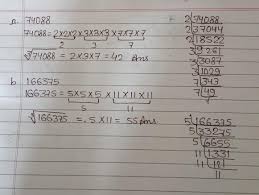 a 74088
74088 = 2×2×2×3×3×3×7×7×7
2 3 7
∛74088 = 2×3×7 = 42 Ans
b 166375
166375 = 5×5×5×11×11×11
5 11
∛166375 = 5×11 = 55 Ans
2|74088
2|37044
2|18522
3|9261
3|3087
3|1029
7|343
7|49
7
5|166375
5|33275
5|6655
11|1331
11|121
11